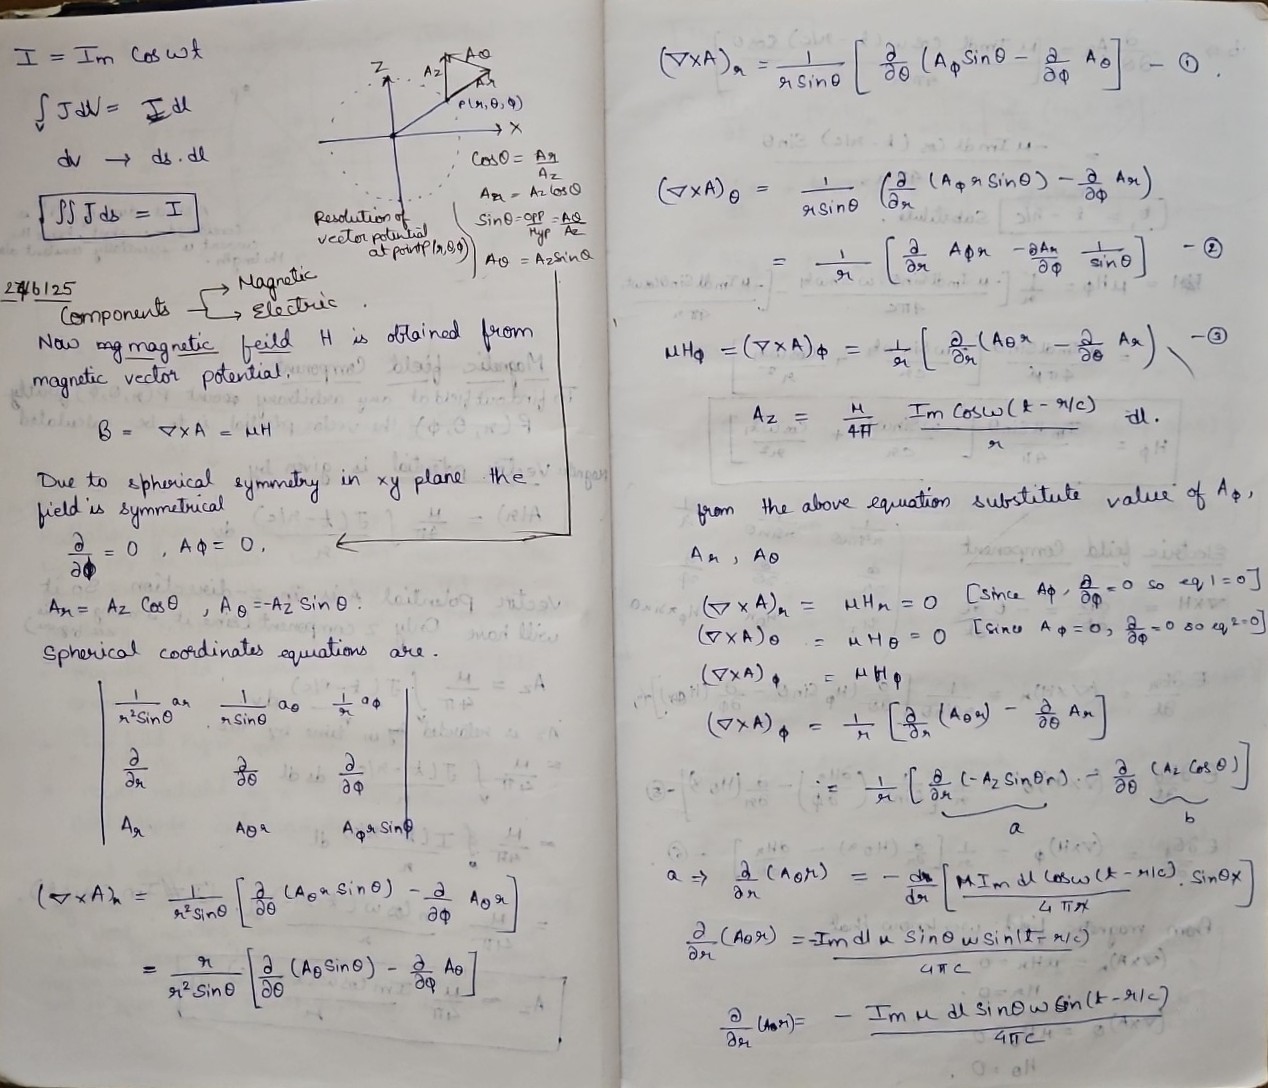 I = Im Cos wt
∫v J dV = I dl
dv → ds . dl
∫∫ J ds = I
Z
Az
Aθ
Ar
P(r, θ, φ)
X
Cosθ = Ar/Az
Ar = Az Cosθ
Sinθ = opp/Hyp = Aθ/Az
Aθ = Az sinθ
Resolution of
vector potential
at point P(r,θ,φ)
27/6/25
Components → Magnetic
→ Electric .
Now magnetic feild H is obtained from
magnetic vector potential.
B = ∇×A = μH
Due to spherical symmetry in xy plane the
field is symmetrical
∂/∂φ = 0 , Aφ = 0.
Ar = Az Cosθ , Aθ = -Az Sinθ .
Spherical coordinates equations are .
1/r²Sinθ ar 1/rSinθ aθ 1/r aφ
∂/∂r ∂/∂θ ∂/∂φ
Ar Aθr Aφ r Sinθ
(∇×A)r = 1/r²Sinθ [∂/∂θ (Aθ r Sinθ) - ∂/∂φ Aθ r]
= r/r²Sinθ [∂/∂θ (Aθ Sinθ) - ∂/∂φ Aθ]
(∇×A)r = 1/rSinθ [∂/∂θ (Aφ Sinθ - ∂/∂φ Aθ] - ① .
(∇×A)θ = 1/rSinθ (∂/∂r (Aφ r Sinθ) - ∂/∂φ Ar)
= 1/r [∂/∂r Aφr - ∂Ar/∂φ 1/sinθ] - ②
μHφ = (∇×A)φ = 1/r [∂/∂r (Aθr - ∂/∂θ Ar) - ③
Az = μ/4π Im Cosω(t - r/c)/r dl.
from the above equation substitute value of Aφ,
Ar , Aθ
(∇×A)r = μHr = 0 [since Aφ, ∂/∂φ = 0 so eq 1 = 0]
(∇×A)θ = μHθ = 0 [since Aφ = 0, ∂/∂φ = 0 so eq 2 = 0]
(∇×A)φ = μHφ
(∇×A)φ = 1/r [∂/∂r (Aθr) - ∂/∂θ Ar]
= 1/r [∂/∂r (-Az Sinθ r) - ∂/∂θ (Az Cosθ)]
a b
a ⇒ ∂/∂r (Aθr) = - d/dr [μ Im dl Cosω(t - r/c) . Sinθ r/4πr]
∂/∂r (Aθr) = -Im dl μ Sinθ ω sin(t - r/c)/4πc
∂/∂r (Aθr) = - Im μ dl Sinθ ω Sin(t - r/c)/4πc